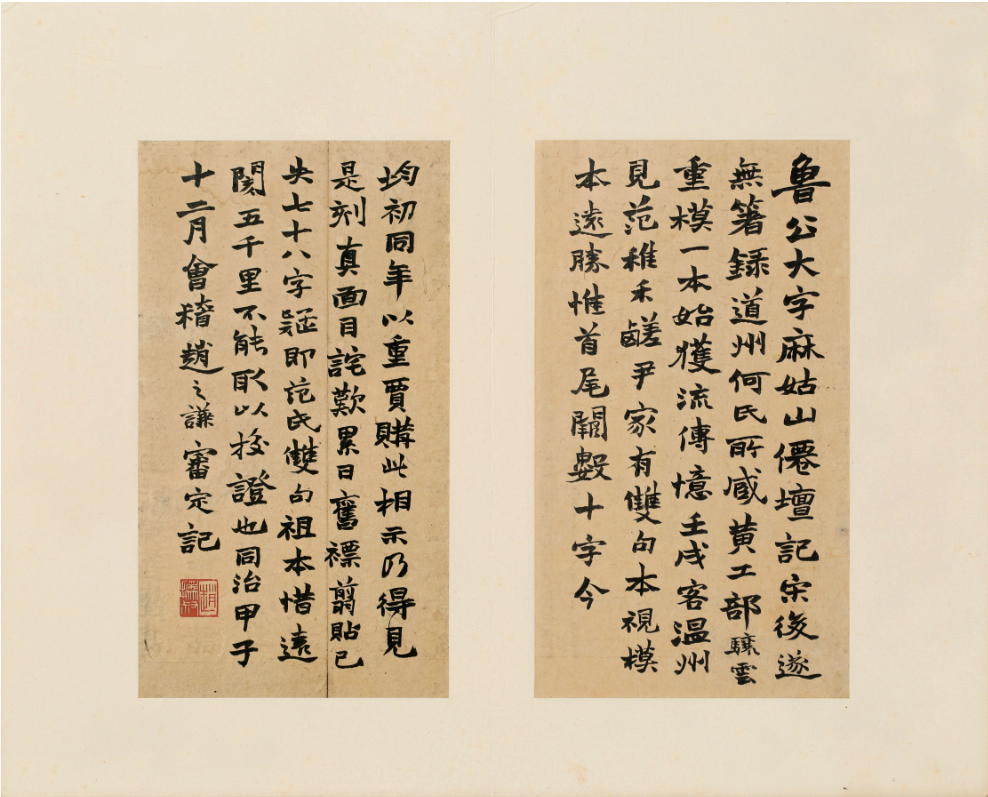 魯公大字麻姑山僊壇記宋後遂
無箸録道州何氏所臧黄工部驤雲
重橅一本始獲流傳憶壬戌客溫州
見范稚禾鹺尹家有雙句本視橅
本遠勝惟首尾闕數十字今
均初同年以重賈購此相示乃得見
是刻真面目詫歎累日舊褾翦貼已
失七十八字疑即范氏雙句祖本惜遠
閡五千里不能取以挍證也同治甲子
十二月會稽趙之謙審定記